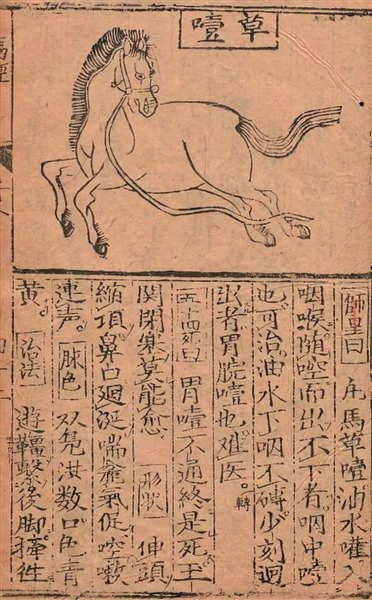 草噎
師皇曰 凡馬草噎油水灌入
咽喉随啌而出不下者咽中噎
也可治油水下咽不少刻迴
出者胃脘噎也难医。轉
曰 胃噎不通終是死王
関閉塞莫能愈 形狀 伸頭
縮項鼻廻涎喘麄氣促啌嗽
連声。脉色 双凫洪数口色青
黄。治法 遊韁繫後脚